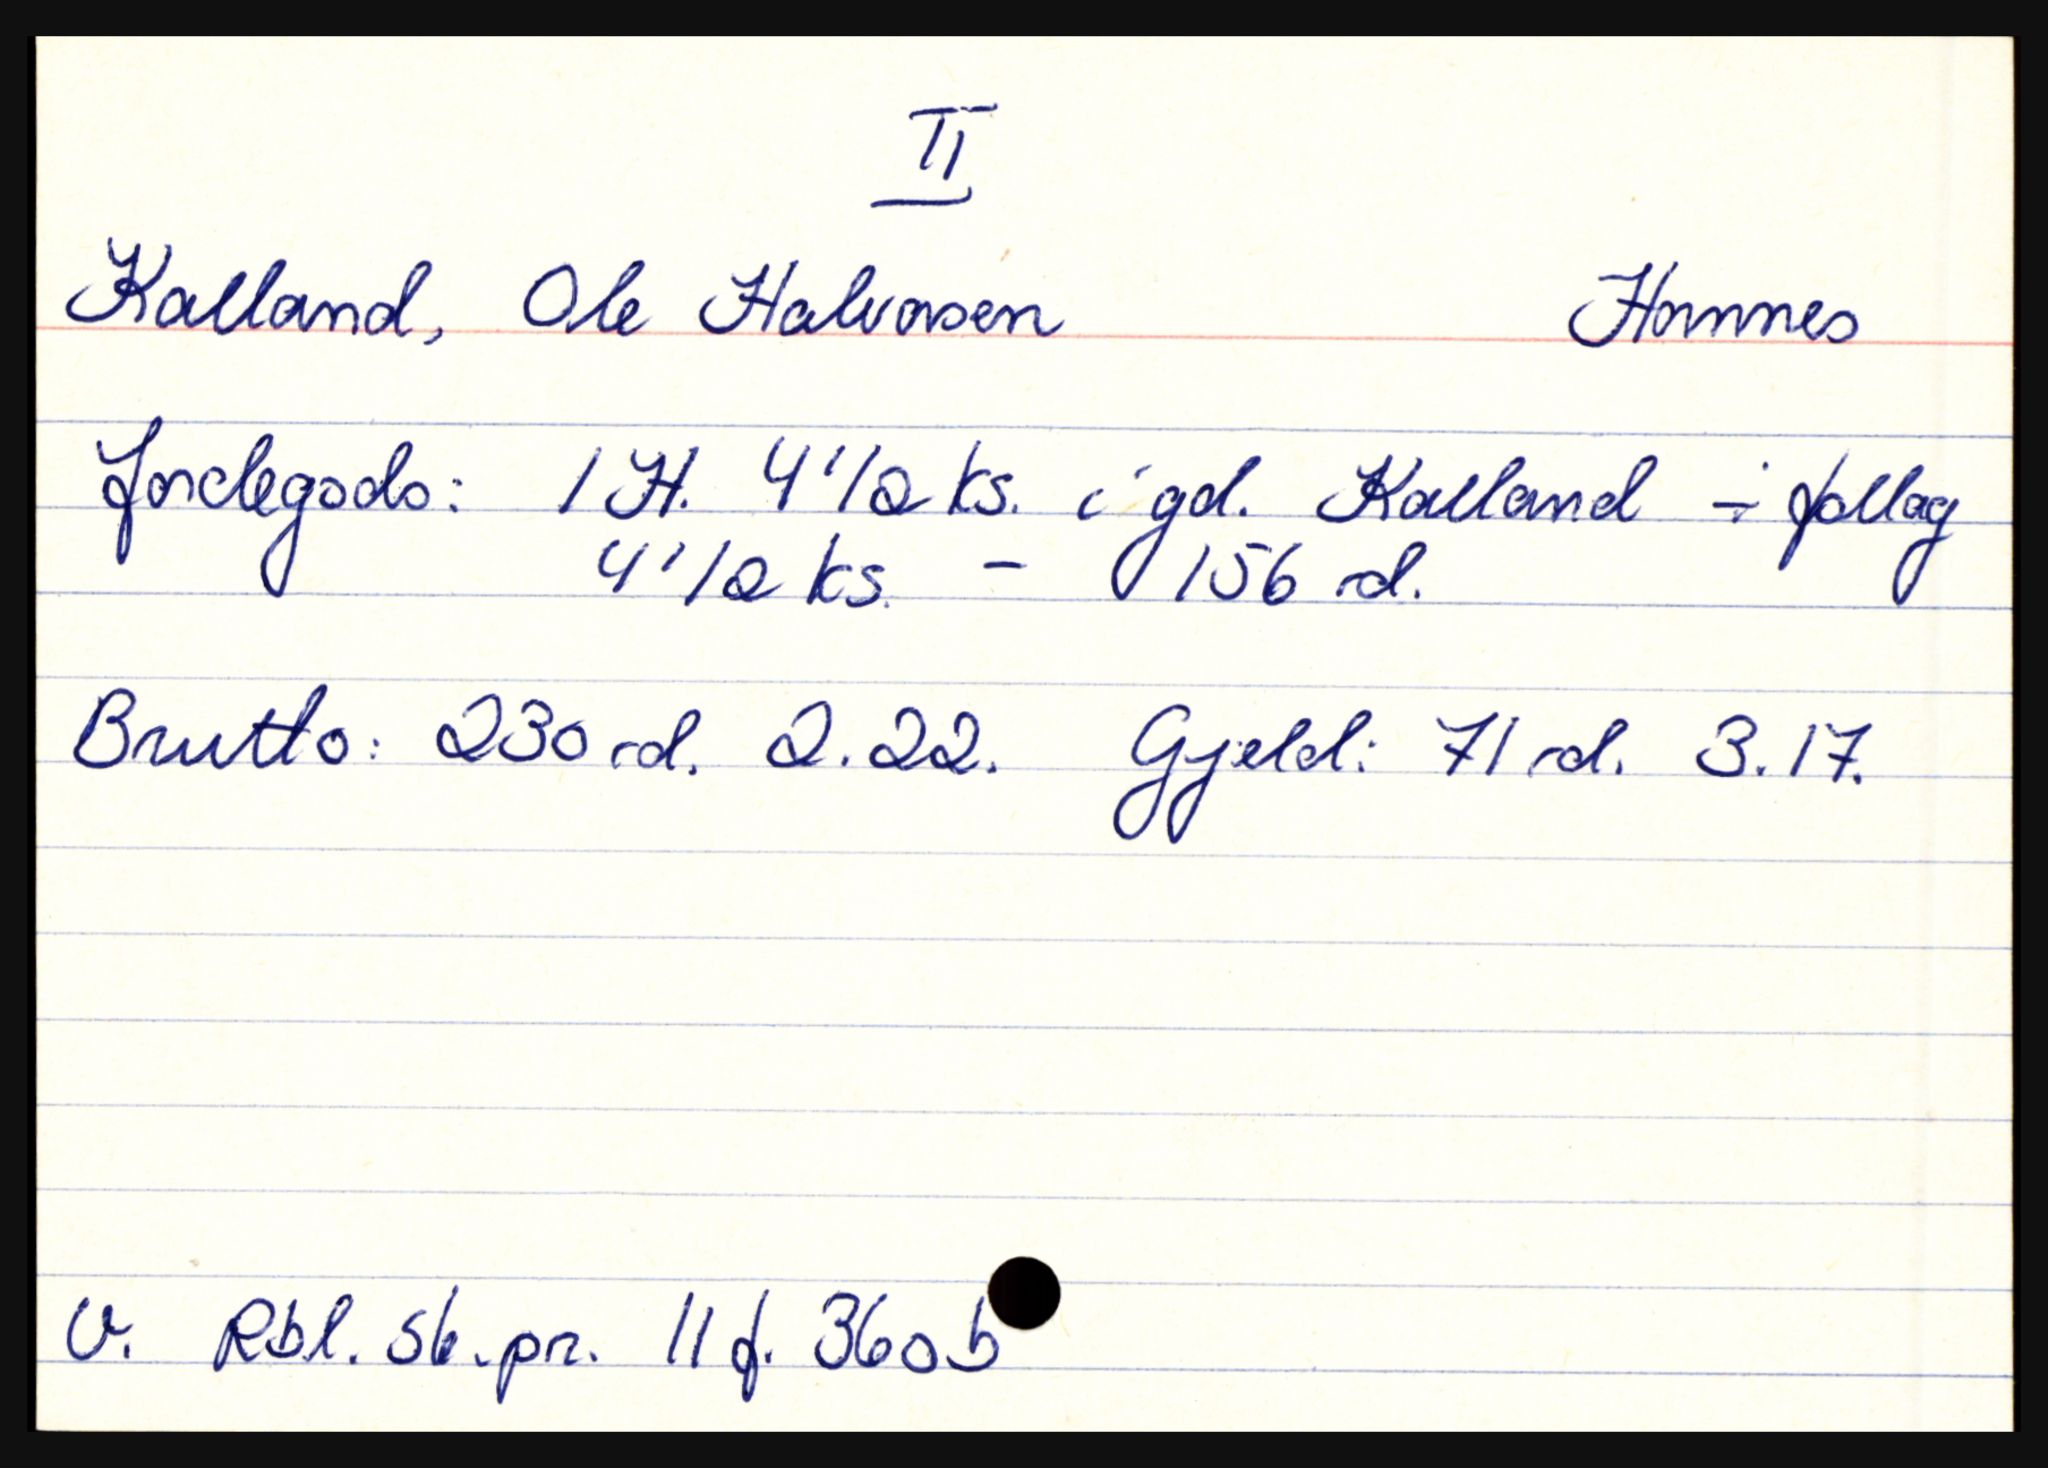 II
Kalland, Ole Halvorsen Homnes
Jordegods: 1 H. 4 1/2 ks. i gd. Kalland ÷ follag
4 1/2 ks. - 156 rd.
Brutto: 230 rd. 2.22. Gjeld: 71 rd. 3.17.
V. Rbl. Sk.pr. 11 f. 360b